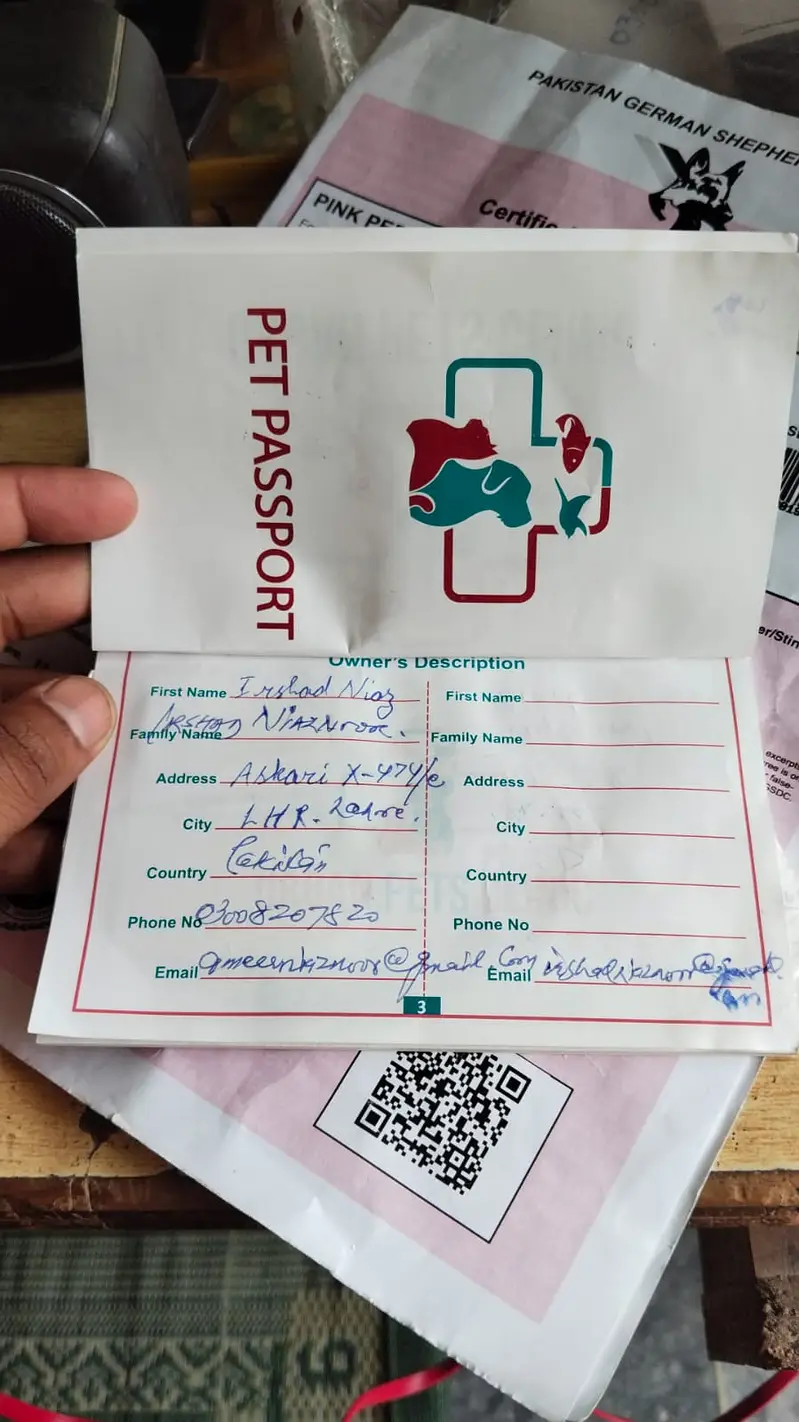 PAKISTAN GERMAN SHEPHE
PINK PE
Certific
PET PASSPORT
Owner's Description
First Name Irshad Niaz
First Name
Family Name IRSHAD NIAZNOOR.
Family Name
Address Askari X-474/e
Address
City LHR. Lahore.
City
Country Pakistan
Country
Phone No 03008207820
Phone No
Email @gmail.com
Email
3
er/Stin
excerpt
ree is o
false-
GSDC.